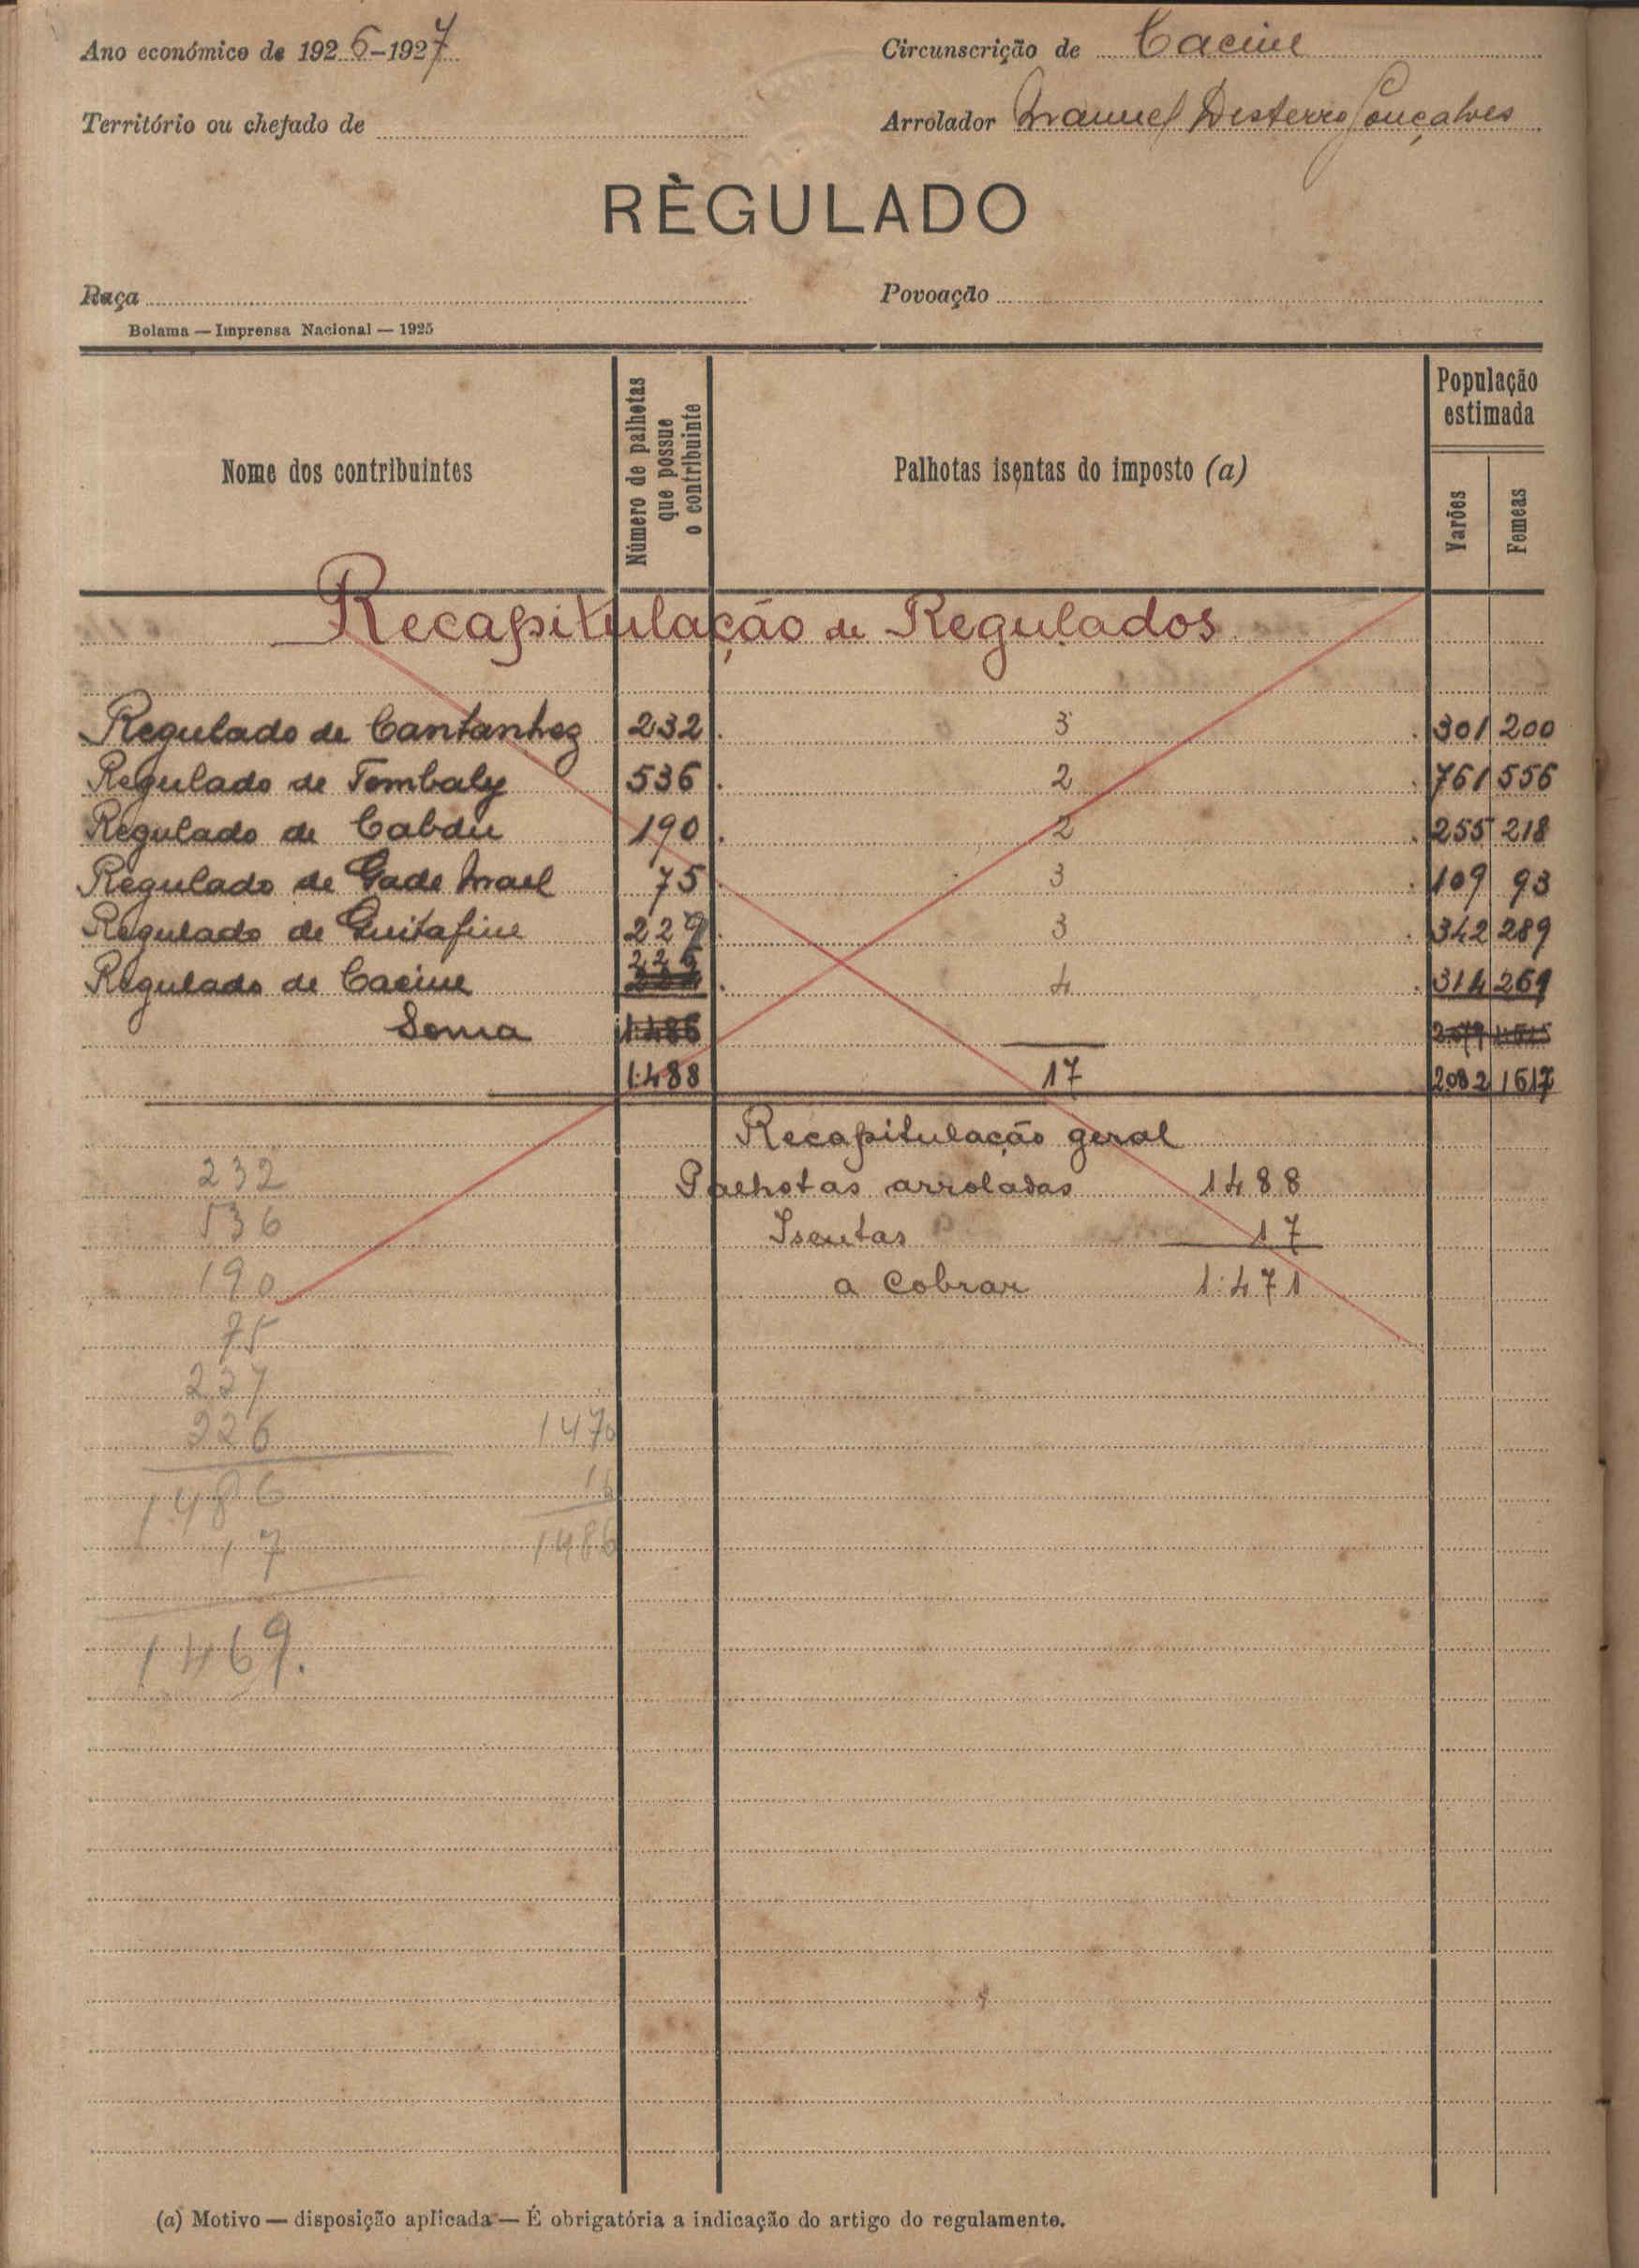 Ano económico de 1926-1927
Circunscrição de Cacine
Território ou chefado de
Arrolador Manuel Desterro Gonçalves
RÈGULADO
Raça
Povoação
Bolama — Imprensa Nacional — 1925
Nome dos contribuintes
Número de palhotas
que possue
o contribuinte
Palhotas isentas do imposto (a)
População
estimada
Varões
Femeas
Recapitulação de Regulados
Regulado de Cantanhez 232 3 301 200
Regulado de Tombaly 536 2 761 556
Regulado de Cabdu 190 2 255 218
Regulado de Gade Mael 75 3 109 93
Regulado de Guitafine 229 3 342 289
Regulado de Cacine 226 4 314 261
Soma 1:486
1:488 17 2082 1617
Recapitulação geral
232
Palhotas arroladas 1488
536
Isentas 17
190
a Cobrar 1:471
75
227
226 1470
1486 16
17 1486
1469.
(a) Motivo — disposição aplicada — É obrigatória a indicação do artigo do regulamento.